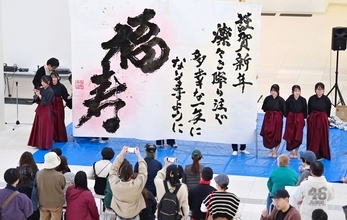 謹賀新年
燦々と降り注ぐ
多幸な一年に
なりますように
福寿
46